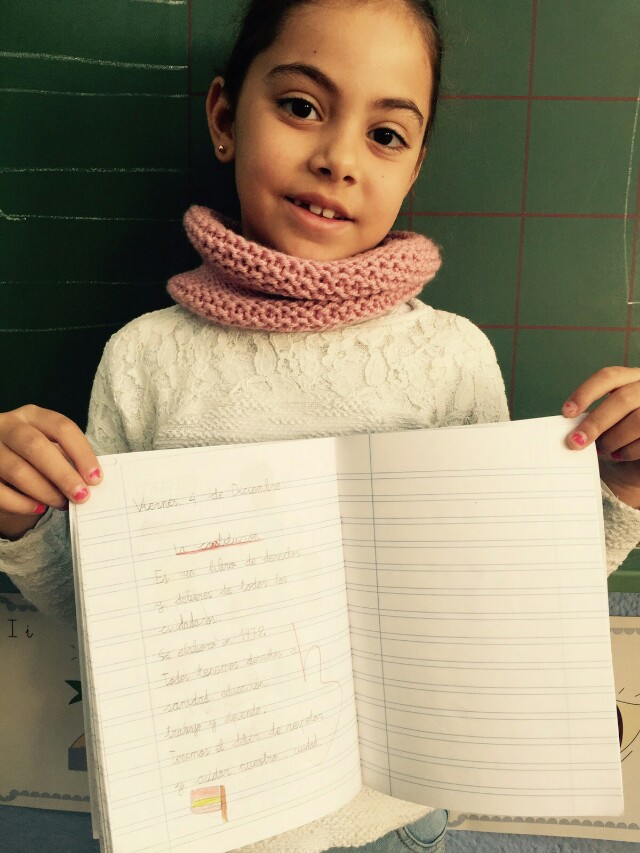 Viernes 4 de Diciembre
La constitución
Es un libro de derechos
y deberes de todos los
ciudadanos.
Se elaboró en 1978.
Todos tenemos derechos a
sanidad, educación,
trabajo y vivienda.
Tenemos el deber de respetar
y cuidar nuestra ciudad.
I i